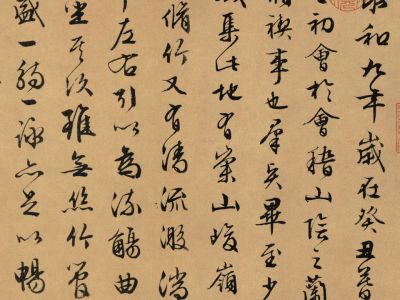 永和九年歲在癸丑暮
之初會於會稽山陰之蘭
脩禊事也羣賢畢至少
咸集此地有崇山峻嶺
脩竹又有清流激湍
帶左右引以為流觴曲
坐其次雖無絲竹管
盛一觴一詠亦足以暢